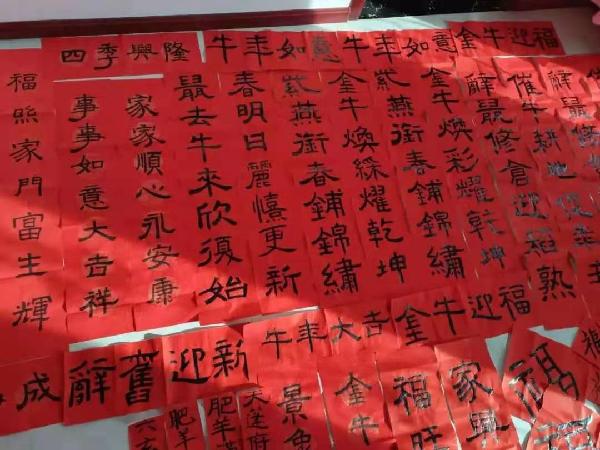 四季興隆
牛年如意
牛年如意
金牛迎福
福照家門富生輝
事事如意大吉祥
家家順心永安康
鼠去牛來欣復始
春明日麗憘更新
紫燕銜春鋪錦繡
金牛煥綵耀乾坤
紫燕銜春鋪錦繡
金牛煥彩耀乾坤
辭鼠修倉迎稻熟
催牛耕地促
辭鼠修
牛年大吉
金牛迎福
成
辭舊迎新
肥羊
肥羊
景象
金牛
福旺
家興
福